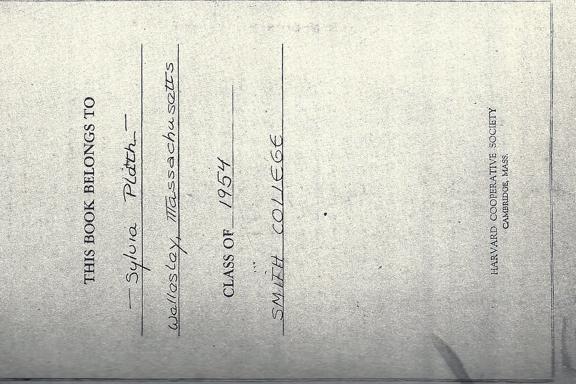 THIS BOOK BELONGS TO
— Sylvia Plath —
Wellesley, Massachusetts
CLASS OF 1954
SMITH COLLEGE
HARVARD COOPERATIVE SOCIETY
CAMBRIDGE, MASS.